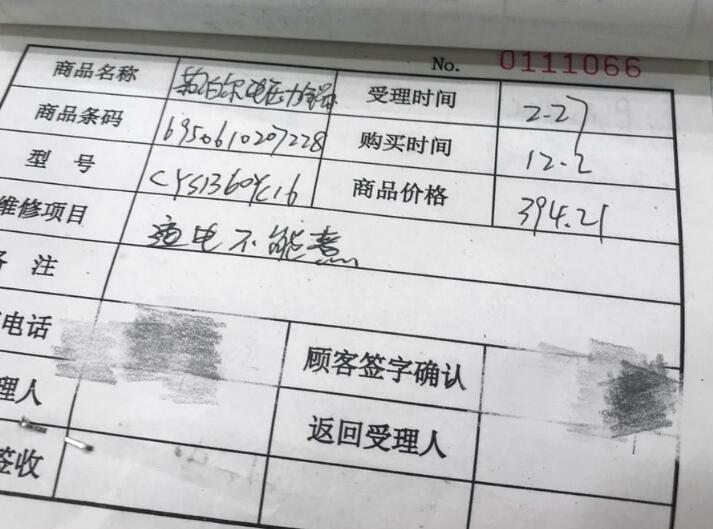 No. 0111066
商品名称 苏泊尔电压力锅 受理时间 2.27
商品条码 6950610207228 购买时间 12.2
型号 CYS1360YC16 商品价格 394.21
维修项目 通电不能煮
备注
电话 顾客签字确认
理人 返回受理人
签收